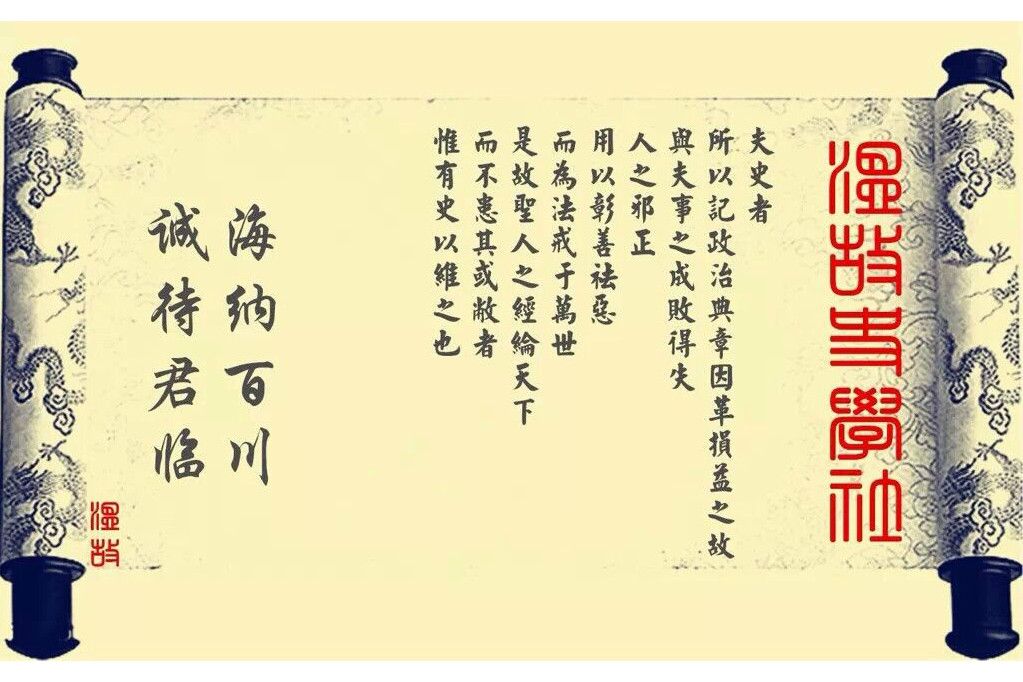 溫故史學社
夫史者
所以記政治典章因革損益之故
與夫事之成敗得失
人之邪正
用以彰善祛惡
而為法戒于萬世
是故聖人之經綸天下
而不患其或敝者
惟有史以維之也
海納百川
誠待君臨
溫故